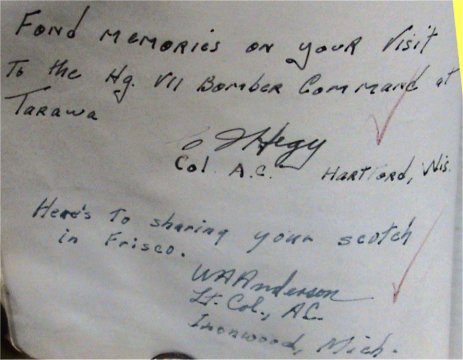 Fond memories on your visit
To the Hq. VII Bomber Command at
Tarawa
Hegy
Col. A.C. Hartford, Wis.
Here's To sharing your scotch
in Frisco.
WA Anderson
Lt. Col., AC.
Ironwood, Mich.